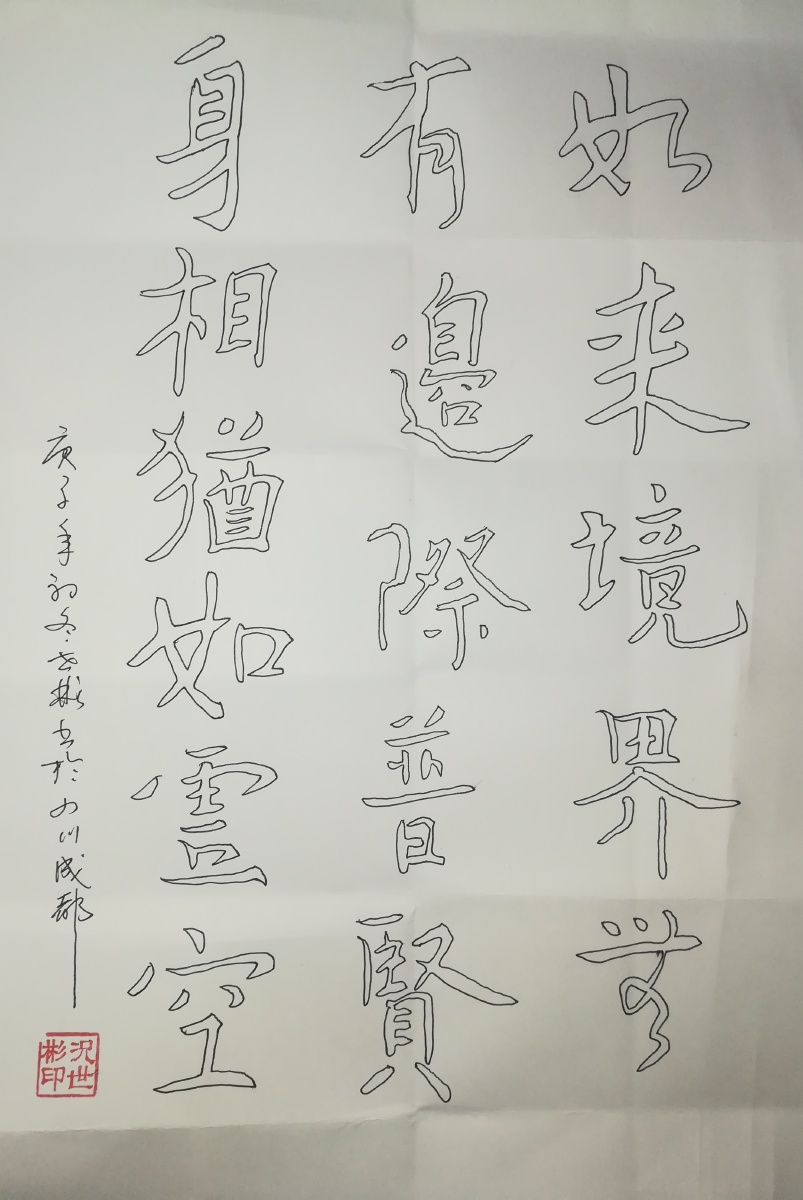 如来境界無
有邊際普賢
身相猶如虚空
庚子年初冬世彬书於四川成都
況世彬印